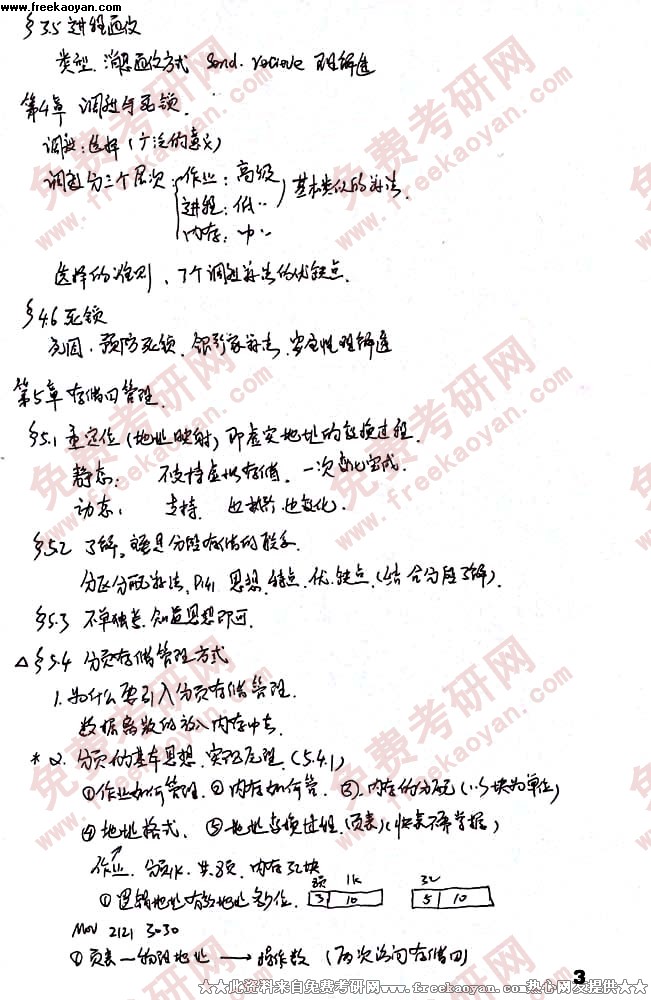 www.freekaoyan.com
§3.5 进程通仪
类型、消息通仪方式 send. recieve 理解透
第4章 调进与死锁.
调进:选择(广泛的意义)
调度分三个层次:作业:高级
进程:低〃 基本类似的算法.
内存:中〃
选择的准则、了个调进算法的优缺点.
§4.6 死锁
免因、预防死锁、银行家算法、安全性理解透
第5章 存储四管理.
§5.1 重定位(地址映射)即虚实地址的变换过程.
静态: 不支持虚拟存储、一次变化完成.
动态: 支持、边执行边变化.
§5.2 了解。主要是分区存储的联系
分区分配算法, P111 思想、特点、优、缺点.(结合分段了解).
§5.3 不单独考、知道思想即可.
△§5.4 分页存储管理方式
1. 为什么要引入分页存储管理.
数据离散的放入内存中去.
* 2. 分页的基本思想、实现原理.(5.4.1)
①作业如何管理.②内存如何管.③.内存的分配(以块为单位)
④地址格式. ⑤地址变换过程.(页表)(快表不再掌握)
作业 分1K 共8页, 内存32块
页 1K 32
①逻辑地址有效地址多少位. 3 10 5 10
Mov 2121 3030
①页表—物理地址 → 操作数 (两次访问存储四)
3
★★此资料来自免费考研网www.freekaoyan.com热心网友提供★★
免费考研网
www.freekaoyan.com